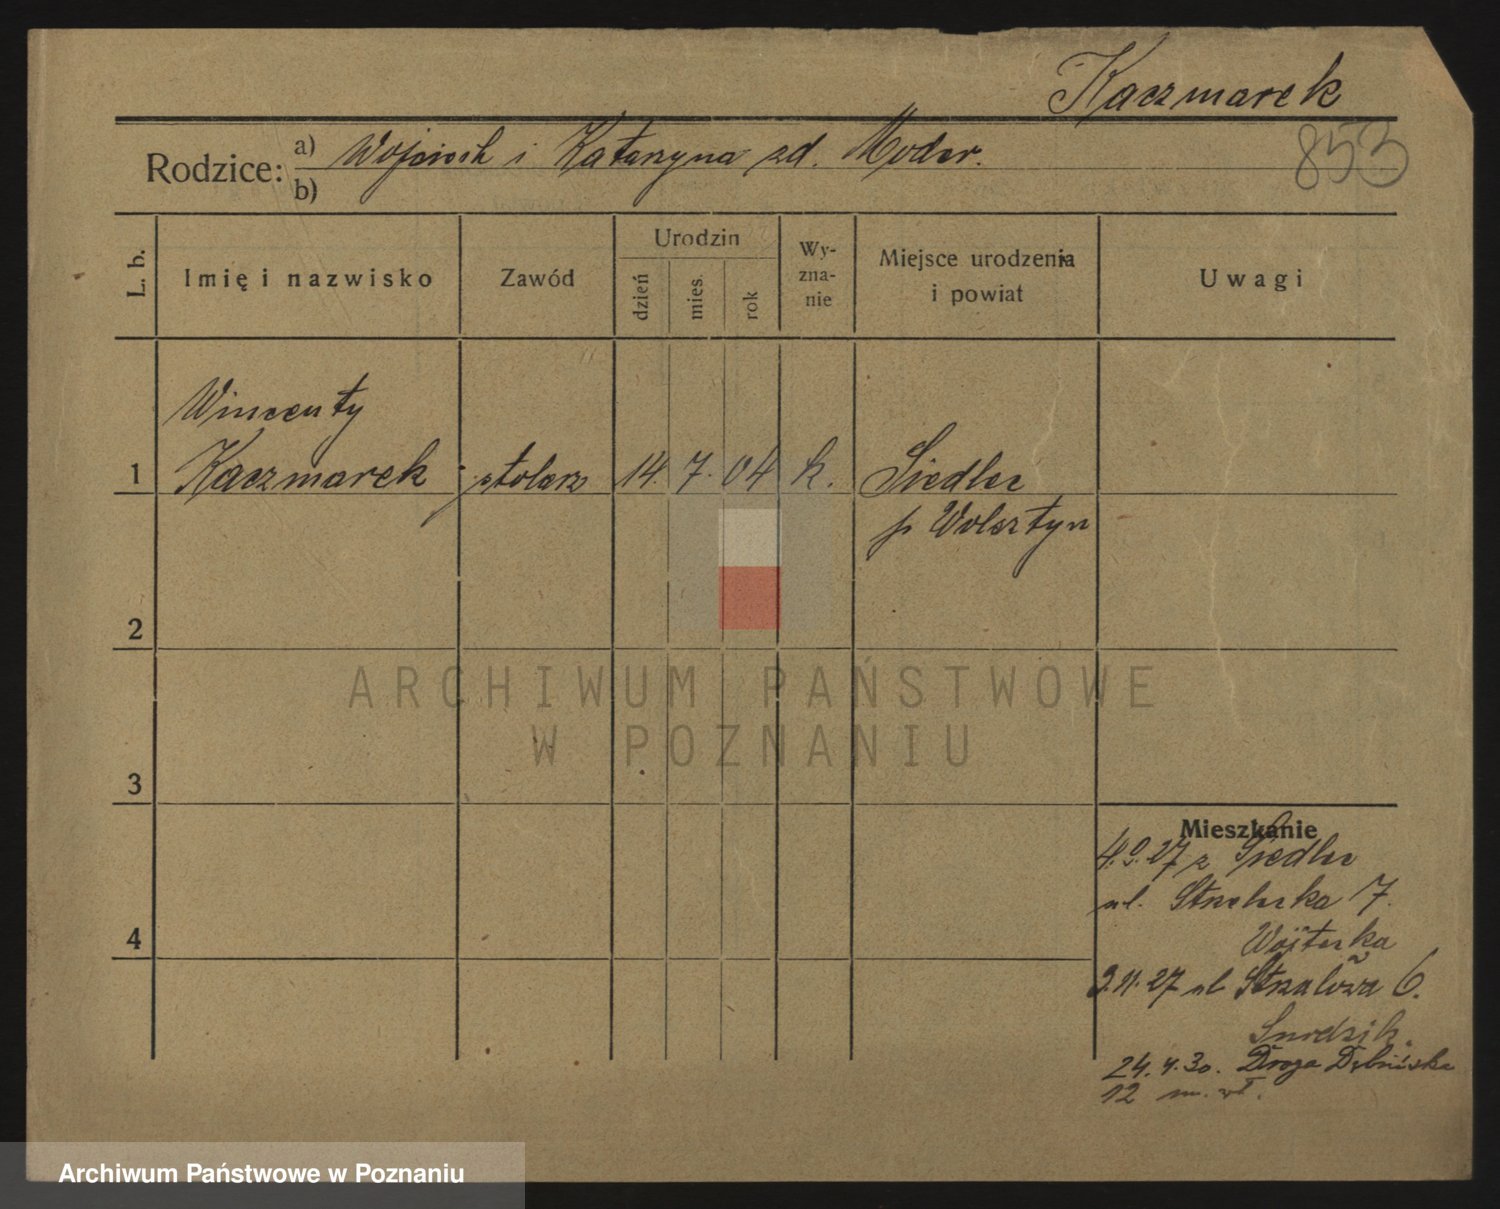 Kaczmarek
853
Rodzice: a) Wojciech i Katarzyna zd. Moder.
b)
L. b.
Imię i nazwisko
Zawód
Urodzin
dzień
mies.
rok
Wy-
zna-
nie
Miejsce urodzenia
i powiat
Uwagi
Wincenty
1 Kaczmarek stolarz 14. 7. 04 k. Siedlec
p Wolsztyn
2
3
4
Mieszkanie
4.9.27 z Siedlec
ul. Strzelecka 7.
3.11.27 ul Strzałowa 6.
24.4.30. Droga Dębińska
12 m. wł.
ARCHIWUM PAŃSTWOWE
W POZNANIU
Archiwum Państwowe w Poznaniu